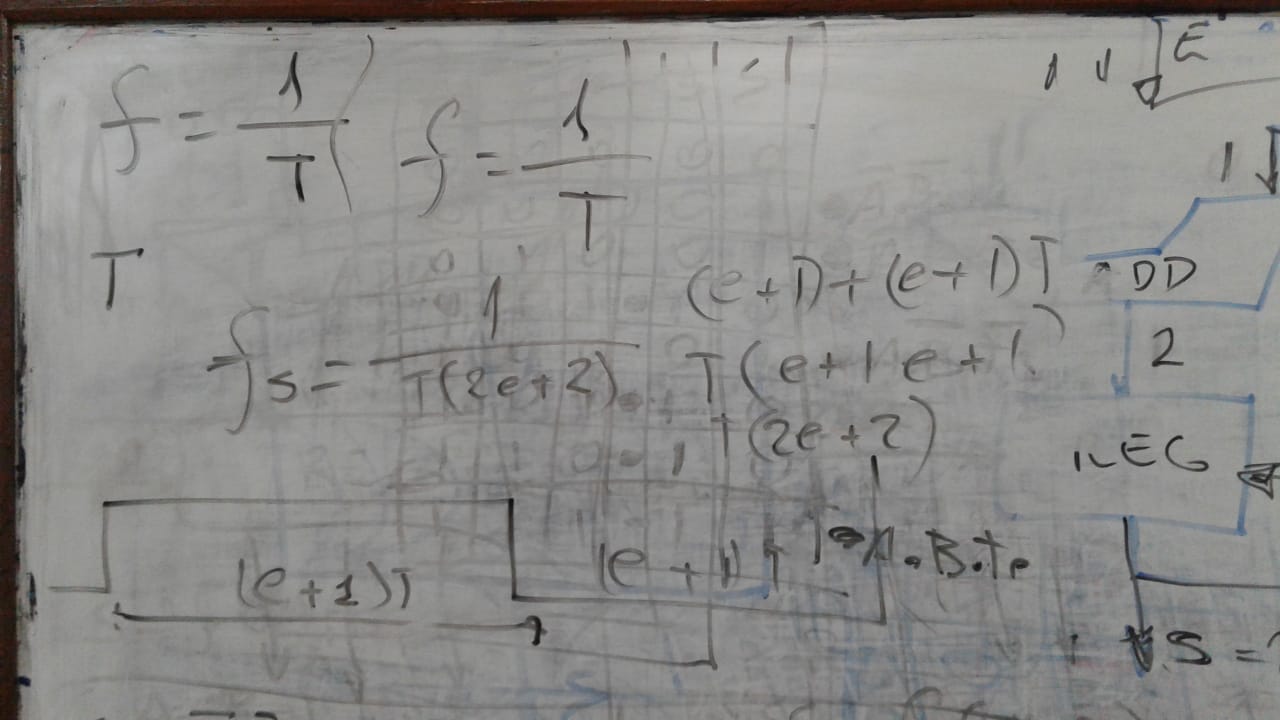 f = 1/T
f = 1/T
T
fs = 1/T(2e+2)
(e+1)+(e+1)T
T(e+1 e+1)
T(2e+2)
(e+1)T
(e+1)T
E
1
DD
2
REG
S =